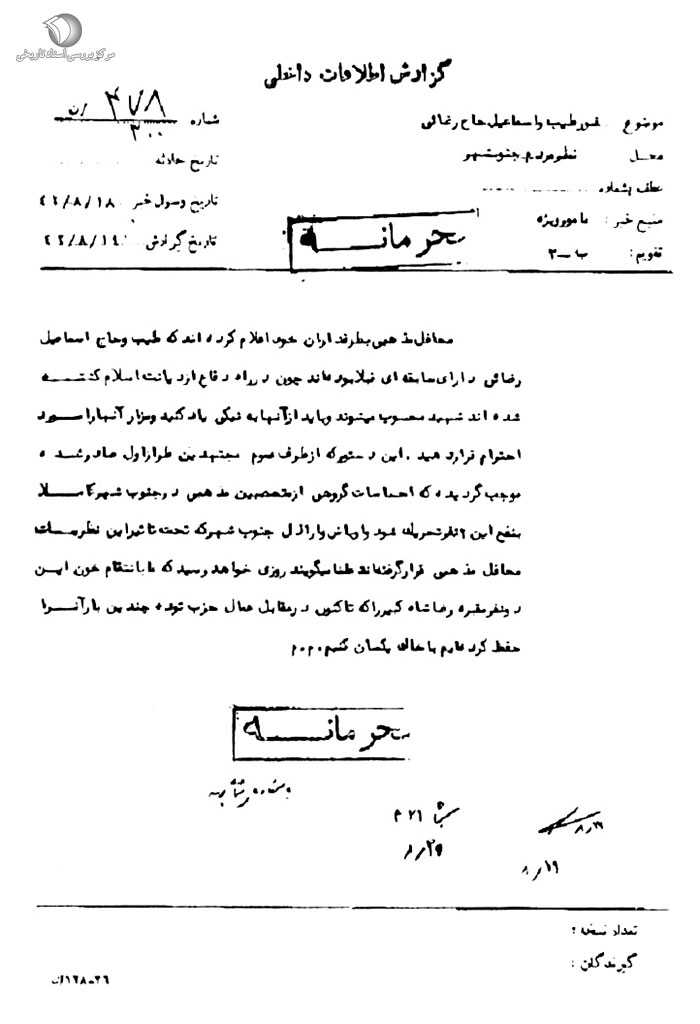 مرکز بررسی اسناد تاریخی
گزارش اطلاعات داخلی
موضوع : طیب و اسماعیل حاج رضائی
شماره ۴۷۸
۳۰۰
محل : نظر مردم جنوب شهر
تاریخ حادثه
عطف بشماره
تاریخ وصول خبر ۴۲/۸/۱۸
منبع خبر : مامور ویژه
تاریخ گزارش ۴۲/۸/۱۹
تقویم : ب ـ ۳
محرمانه
محافل مذهبی بطرفداران خود اعلام کرده اند که طیب و حاج اسماعیل
رضائی دارای سابقه ای قبلا بوده اند چون در راه دفاع از دیانت اسلام کشته
شده اند شهید محسوب میشوند و باید از آنها به نیکی یاد کنید و مزار آنها را مورد
احترام قرار دهید . این دستور که از طرف عموم مجتهدین طراز اول صادر شده
موجب گردیده که احساسات گروهی از متعصبین مذهبی در جنوب شهر کاملا
بنفع این ۲ نفر تحریک شود و اوباش و اراذل جنوب شهر که تحت تاثیر این نظریات
محافل مذهبی قرار گرفته اند علنا میگویند روزی خواهد رسید که ما بانتقام خون این
دو نفر مقبره رضا شاه کبیر را که تاکنون در مقابل عمال حزب توده چندین بار آنرا
حفظ کرده ایم با خاک یکسان کنیم . م . م
محرمانه
۳۲۱
۸/۱۹
۸/۲۵
۸/۱۹
تعداد نسخه :
گیرندگان :
۲۶-۱۲۸/ان